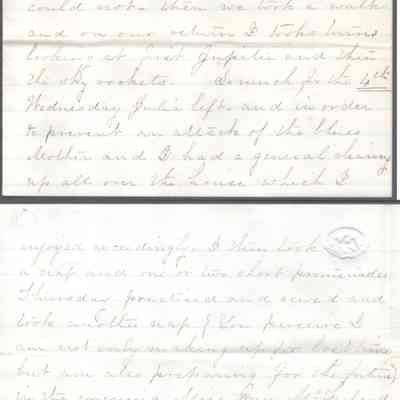 could not. Then we took a walk
and on our return I took turns
looking at first Jupiter and then
the sky rockets. So much for the 4th
Wednesday Julia left and in order
to prevent an attack of the blues
Mother and I had a general clearing
up all over the house which I
enjoyed exceedingly. I then took
a nap and one or two short promenades.
Thursday practised and sewed and
took another nap & You perceive I
am not only making up for lost time
but am also preparing for the future
in the evening Miss